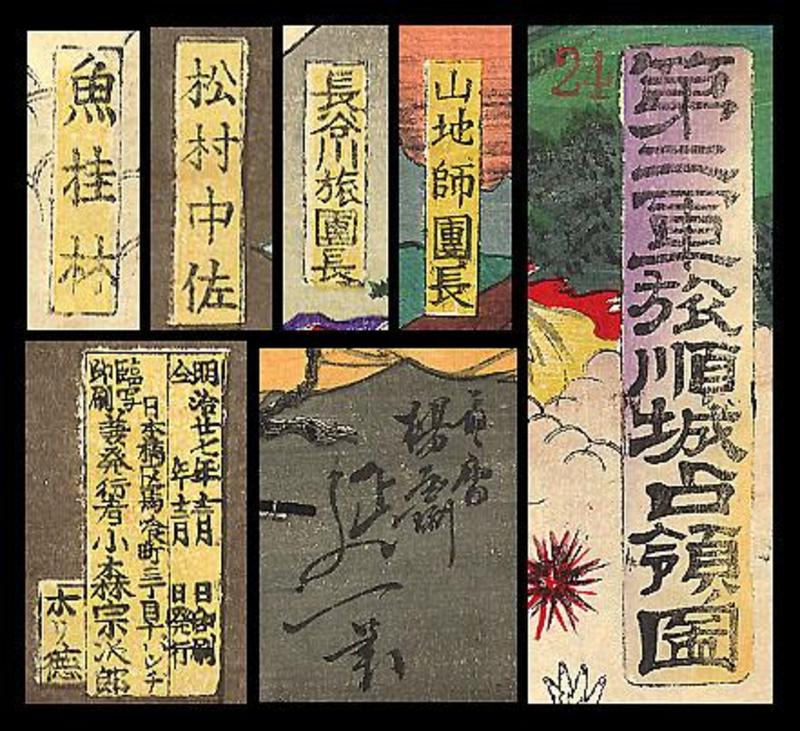 魚桂林
松村中佐
長谷川旅團長
山地師團長
24
第二軍旅順城占領圖
明治廿七年十一月 日印刷
仝 年十二月 日発行
日本橋区馬喰町三丁目十八バンチ
臨写印刷兼発行者小森宗次郎
ホリ徳
楊斎
延一筆